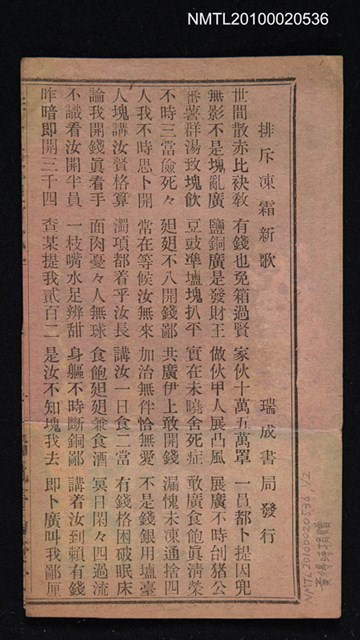 NMTL20100020536
排斥凍霜新歌
瑞成書局發行
世間散赤比袂敎 有錢也免箱過賢 家伙十萬五萬罩 一昌都卜提因兜
無影不是塊亂廣 鹽銅廣是發財王 做伙甲人展凸風 展廣不時刣猪公
番薯群湯致塊飲 豆豉準壚塊扒平 實在未曉舍死症 敢廣食飽眞淸榮
不時三當儉死々 𢓜𢓜不八開錢鄙 共廣伊上敢開錢 漏愧未凍通捨四
人我不時思卜開 常在等候汝無來 加治無伴恰無愛 不是錢銀用壚臺
人塊講汝賢格算 濁項都着乎汝長 講汝一日食二當 有錢格困破眠床
論我開錢眞看手 面肉憂々人無球 食飽𢓜𢓜兼食酒 冥日閑々四過流
不識看汝開半員 一枝嘴水足辨甜 身軀不時斷銅鄙 講着汝到賴有錢
昨暗即開三千四 查某提我貳百二 是汝不知塊我去 即卜廣叫我鄙厘
NMTL20100020536 1/2